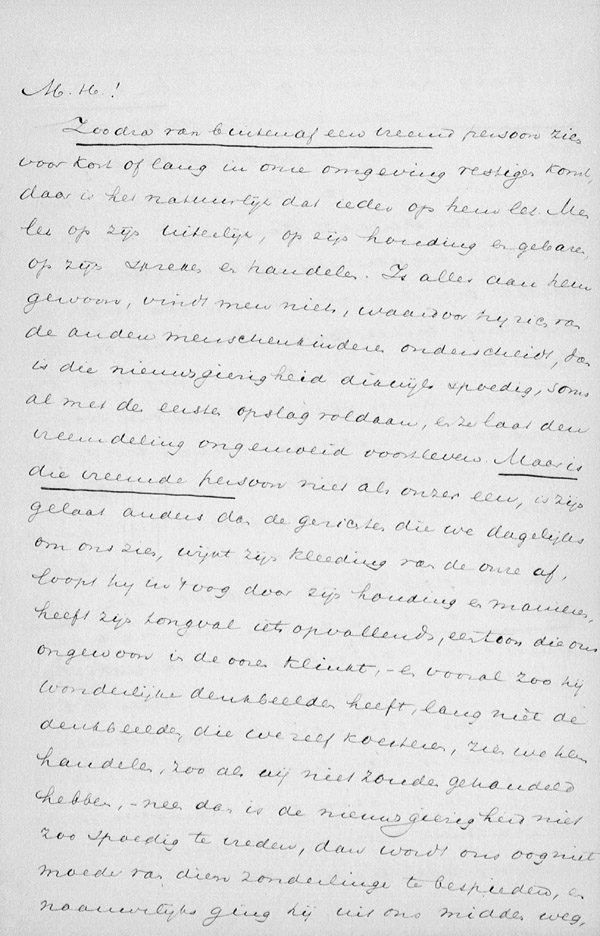 M. H.!
Zoodra van buitenaf een vreemd persoon zich
voor kort of lang in onze omgeving vestigen komt,
daar is het natuurlijk dat ieder op hem let. Men
let op zijn uiterlijk, op zijn houding en gebaren,
op zijn spreken en handelen. Is alles aan hem
gewoon, vindt men niets, waardoor hij zich van
de andere menschenkinderen onderscheidt, dan
is die nieuwsgierigheid dikwijls spoedig, soms
al met den eersten opslag voldaan, en ze laat den
vreemdeling ongemoeid voortleven. Maar is
die vreemde persoon niet als onzer een, is zijn
gelaat anders dan de gezichten die we dagelijks
om ons zien, wijkt zijn kleeding van de onze af,
loopt hij in 't oog door zijn houding en manieren,
heeft zijn tongval iets opvallends, een toon die ons
ongewoon in de ooren klinkt, - en vooral zoo hij
wonderlijke denkbeelden heeft, lang niet de
denkbeelden die we zelf koesteren, zien we hem
handelen, zoo als wij niet zouden gehandeld
hebben, - nee dan is de nieuwsgierigheid niet
zoo spoedig te vreden, dan wordt ons oog niet
moede van dien zonderlinge te bespieden, en
naauwelijks ging hij uit ons midden weg,